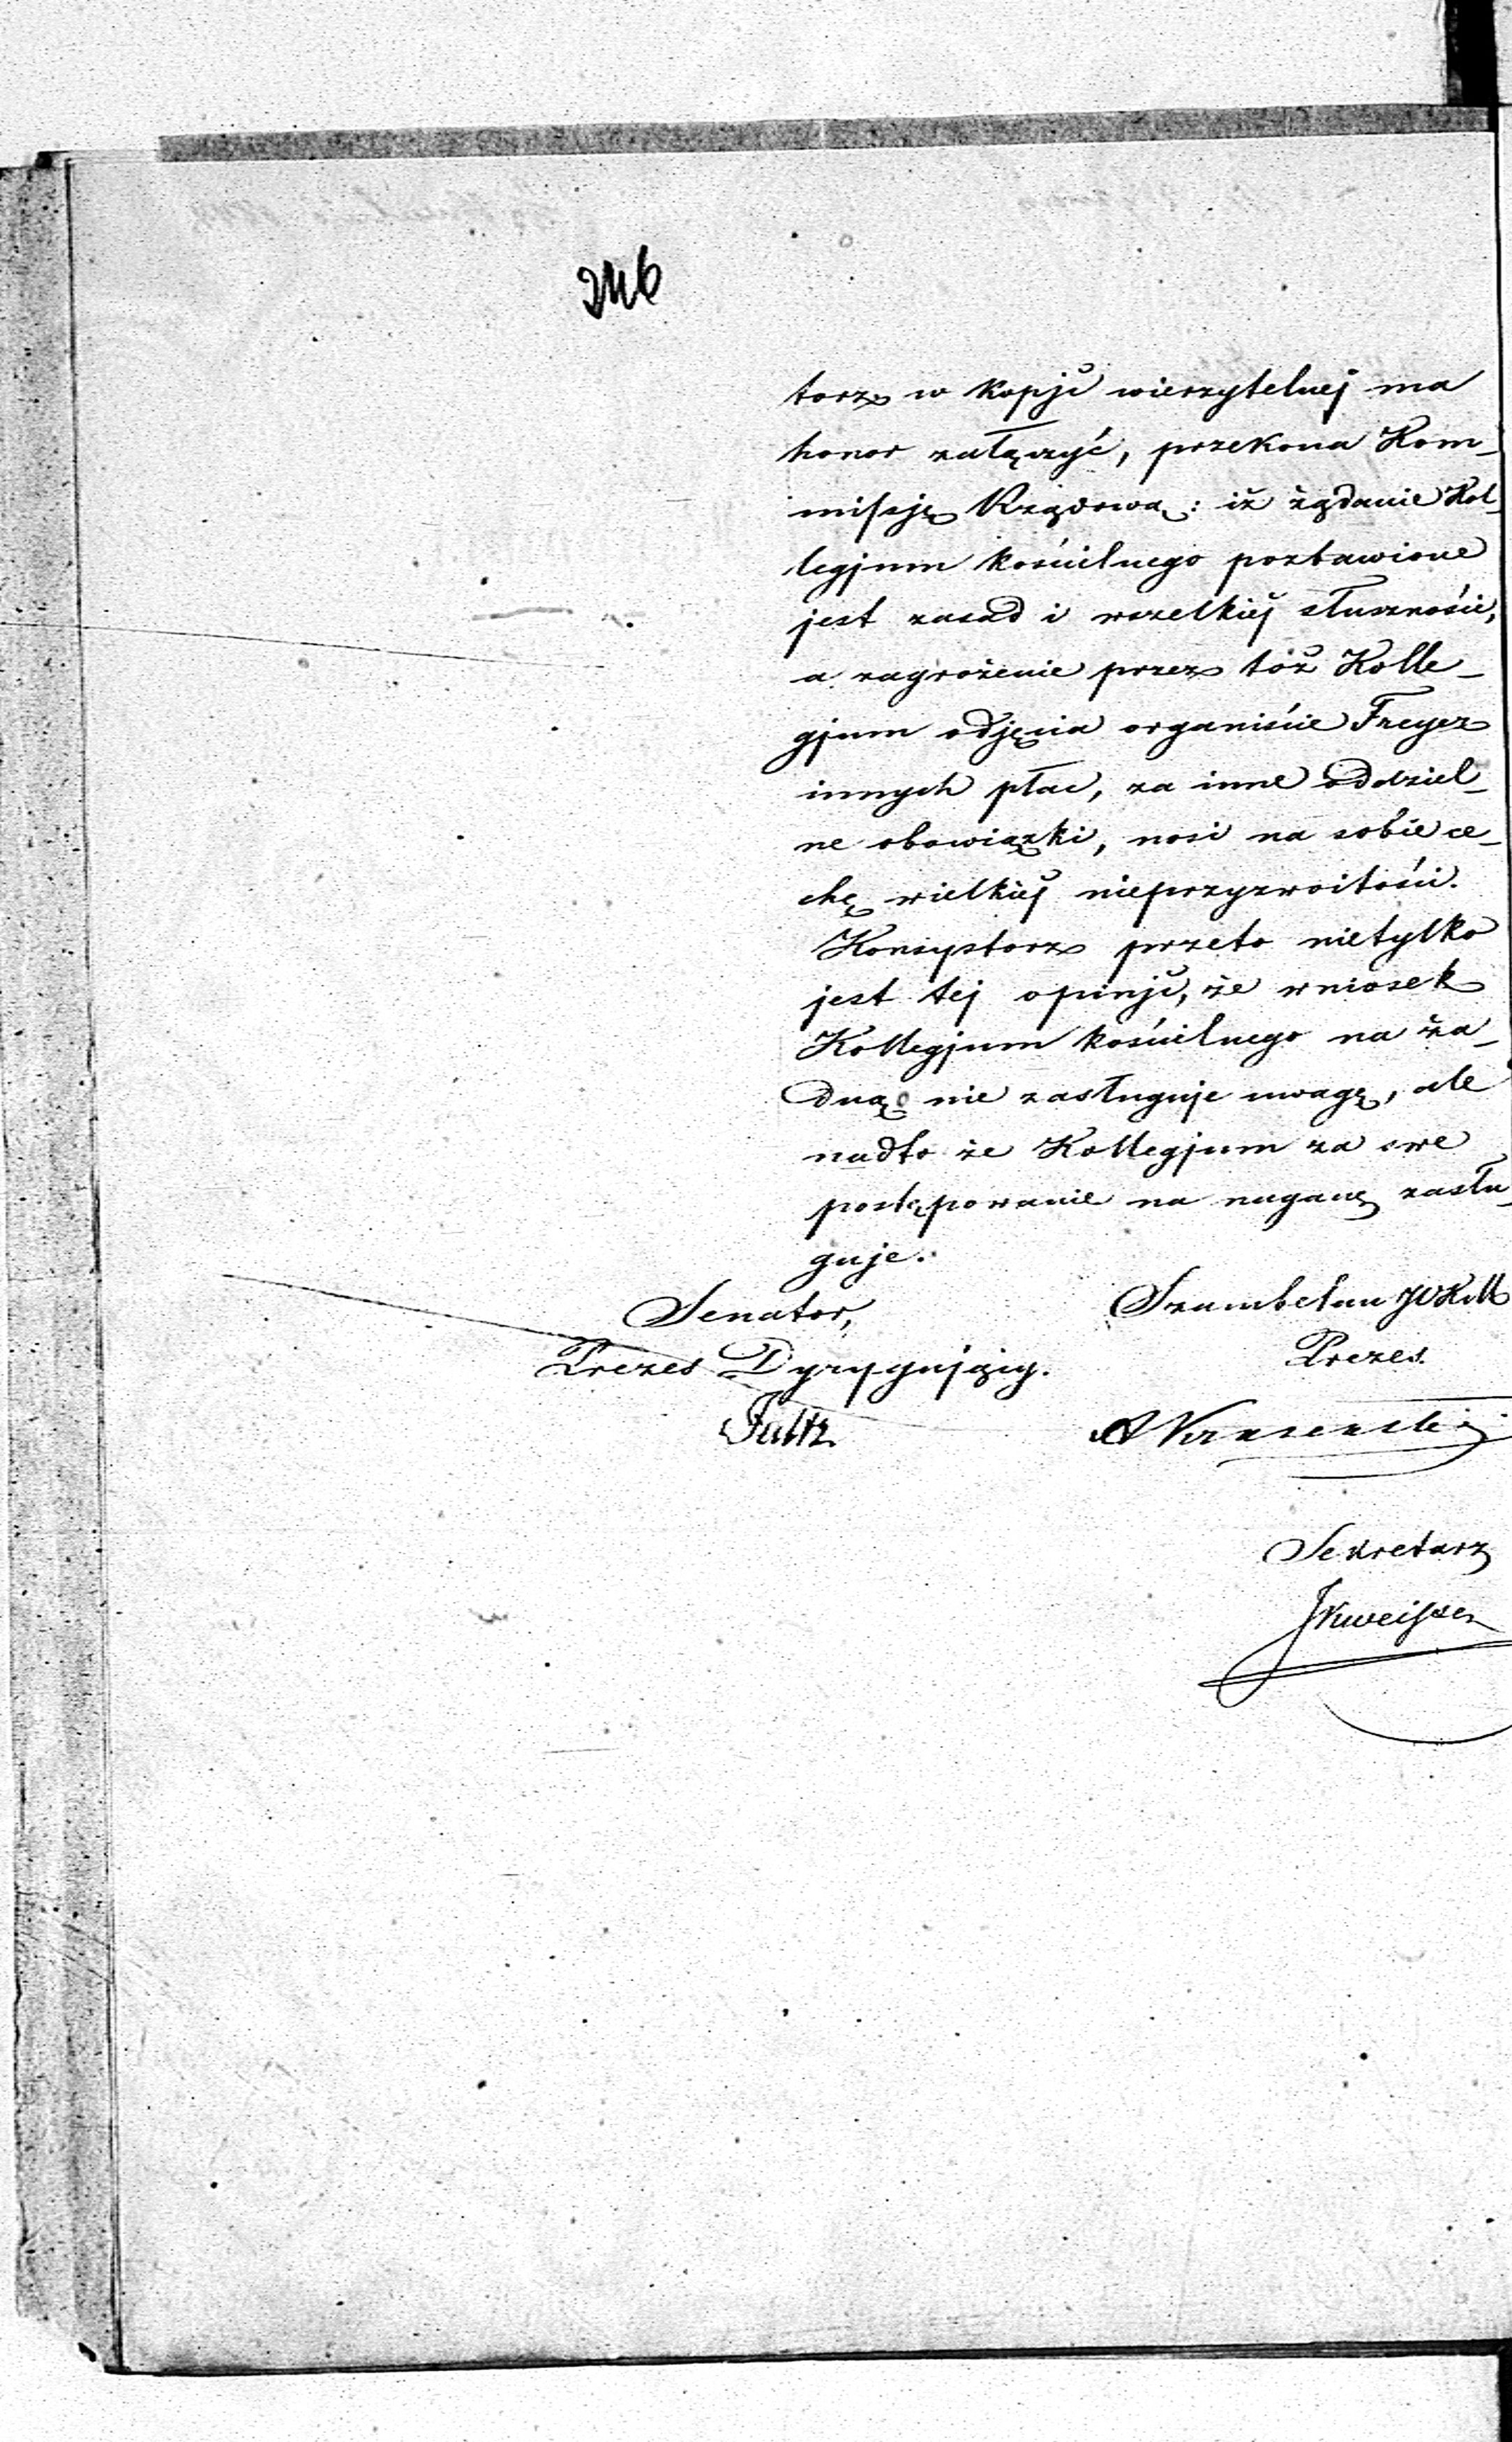 246
torz w kopji wierzytelnej ma
honor załączyć, przekona Kom-
missję Rządową: iż żądanie Kol-
legjum kościelnego pozbawione
jest zasad i wszelkiej słuszności,
a zagrożenie przez toż Kolle-
gjum odjęcia organiście Freyer
innych płac, za inne oddziel-
ne obowiązki, nosi na sobie ce-
chę wielkiej nieprzyzwoitości.
Konsystorz przeto nietylko
jest tej opinji, że wniosek
Kollegjum kościelnego na ża-
dną nie zasługuje uwagę, ale
nadto że Kollegjum za swe
postępowanie na naganę zasłu-
guje.
Senator,
Prezes Dyrygujący.
Szambelan
Prezes.
Sekretarz